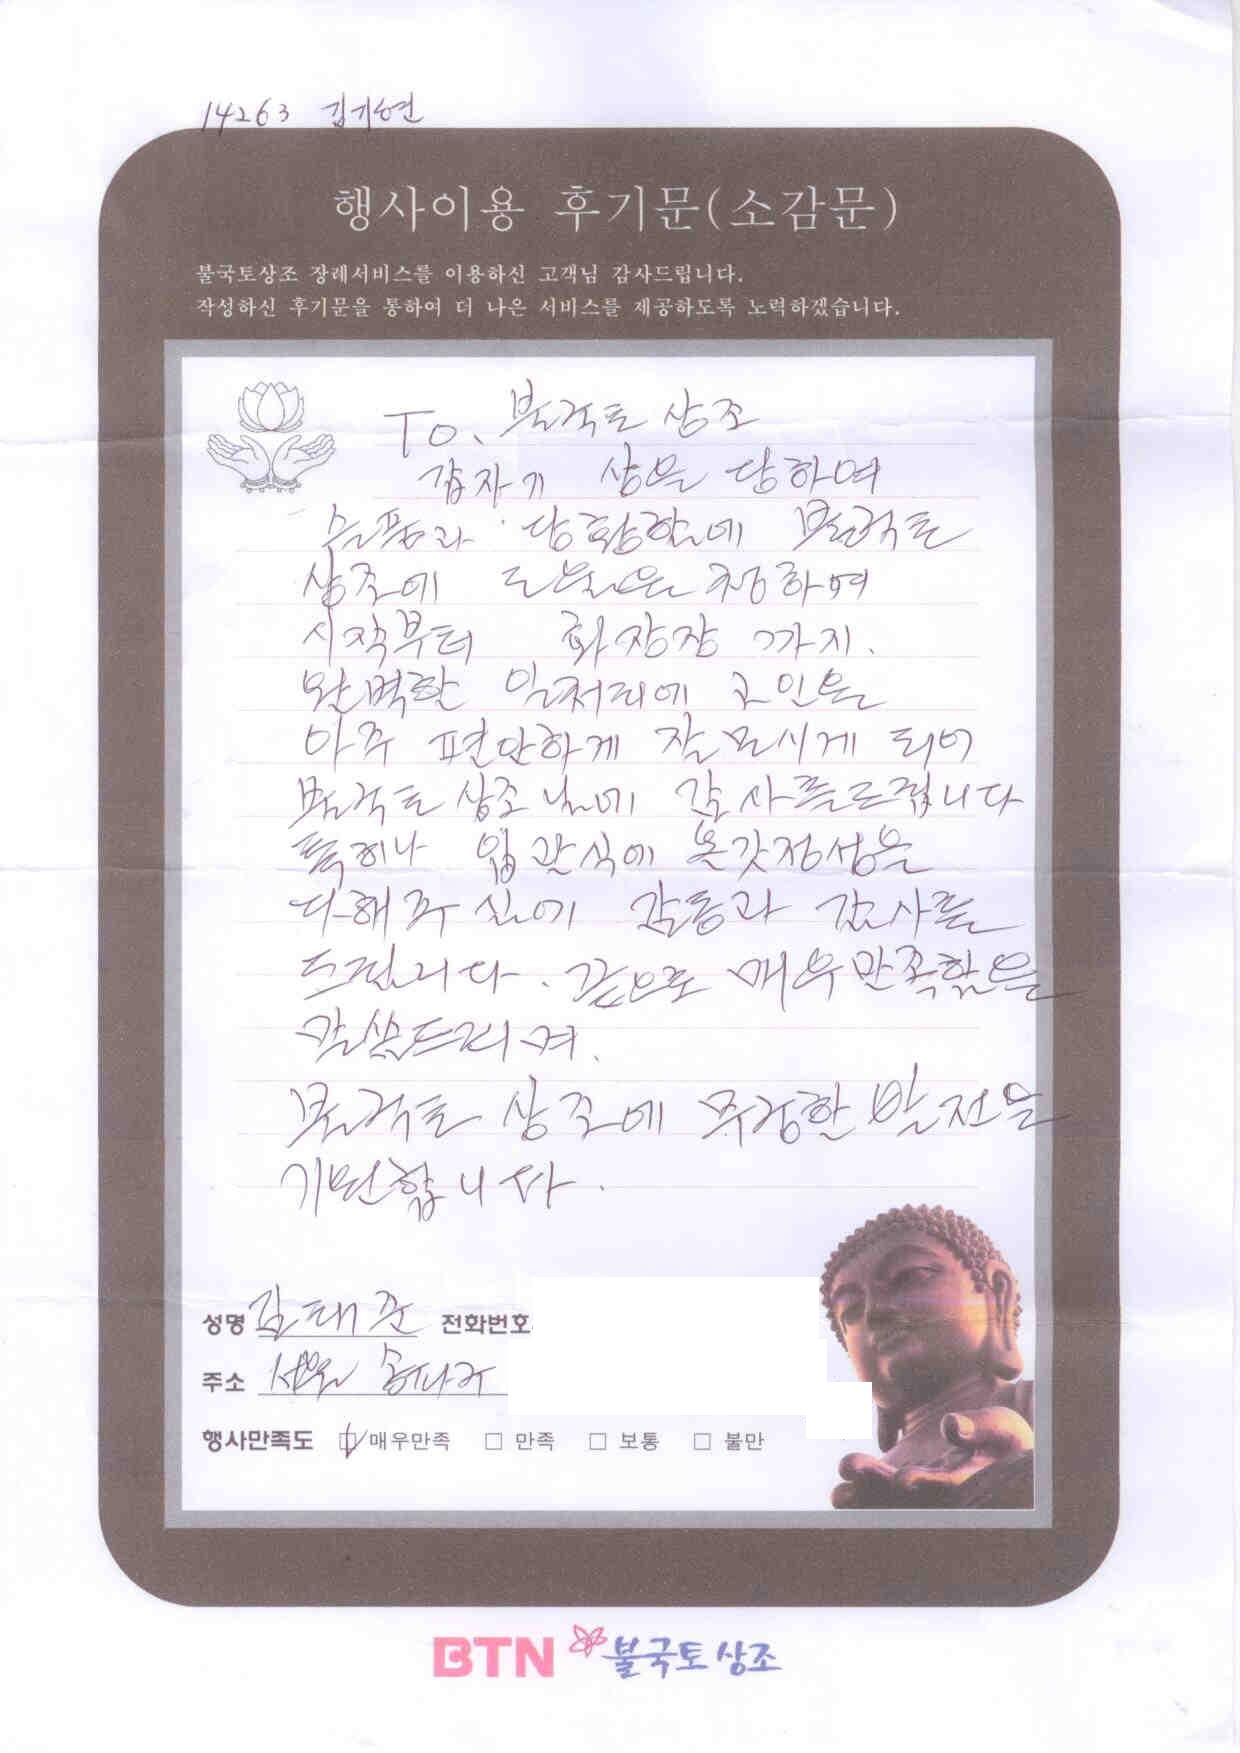 14263 김기현
행사이용 후기문(소감문)
불국토상조 장례서비스를 이용하신 고객님 감사드립니다.
작성하신 후기문을 통하여 더 나은 서비스를 제공하도록 노력하겠습니다.
To. 불국토 상조
갑자기 상을 당하여
슬픔과 당황함에 불국토
상조에 도움을 청하여
시작부터 화장장 까지.
완벽한 일처리에 고인을
아주 편안하게 잘 모시게 되어
불국토 상조 님에 감사를드립니다
특히나 입관식에 온갓정성을
다해 주심에 감동과 감사를
드립니다. 끝으로 매우만족함을
말씀드리며.
불국토 상조에 무궁한 발전을
기원합니다.
성명 김태준 전화번호
주소 서울 송파구
행사만족도 ☑매우만족 □ 만족 □ 보통 □ 불만
BTN 불국토상조